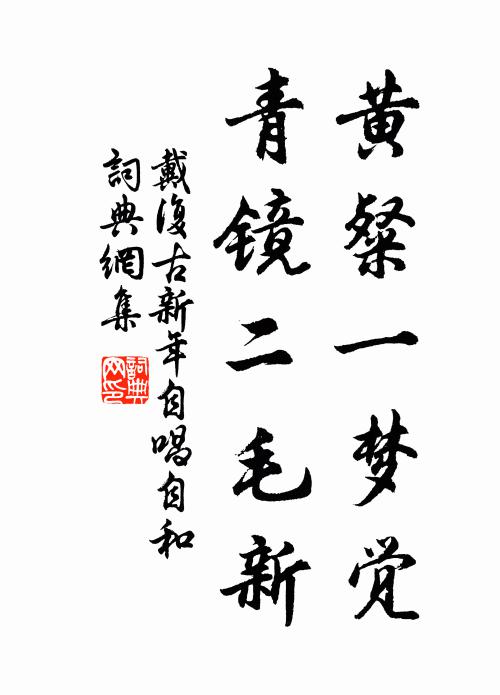 黄粲一梦觉
青镜二毛新
戴復古新年自唱自和
詞典網集
詞典网印